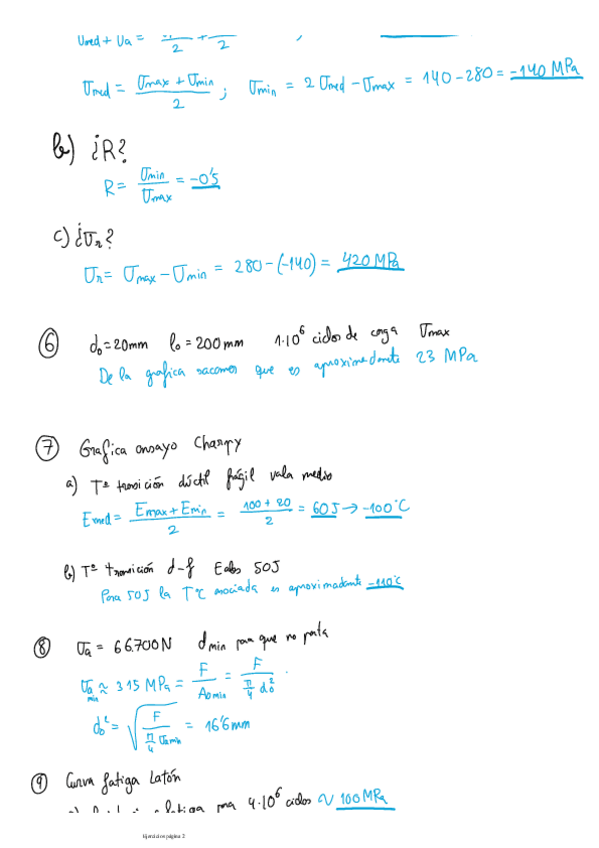 σmed + σa = /2 + /2 ;
σmed = (σmax + σmin)/2 ; σmin = 2 σmed − σmax = 140 − 280 = −140 MPa
b) ¿R?
R = σmin/σmax = −0'5
c) ¿σr?
σr = σmax − σmin = 280 − (−140) = 420 MPa
⑥ d₀ = 20mm l₀ = 200 mm 1·10⁶ ciclos de carga σmax
De la grafica sacamos que es aproximadamente 23 MPa
⑦ Grafica ensayo Charpy
a) Tª transición dúctil frágil valor medio
Emed = (Emax + Emin)/2 = (100 + 20)/2 = 60J → −100°C
b) Tª transición d-f Eabs 50J
Para 50J la T°C asociada es aproximadamente −110°C
⑧ σa = 66.700N dmin para que no parta
σa min ≈ 315 MPa = F/A₀min = F/(π/4 d₀²)
d₀² = √(F/(π/4 σa min)) = 16'6mm
⑨ Curva fatiga Latón
a) fatiga para 4·10⁶ ciclos ~ 100 MPa
Ejercicios página 2